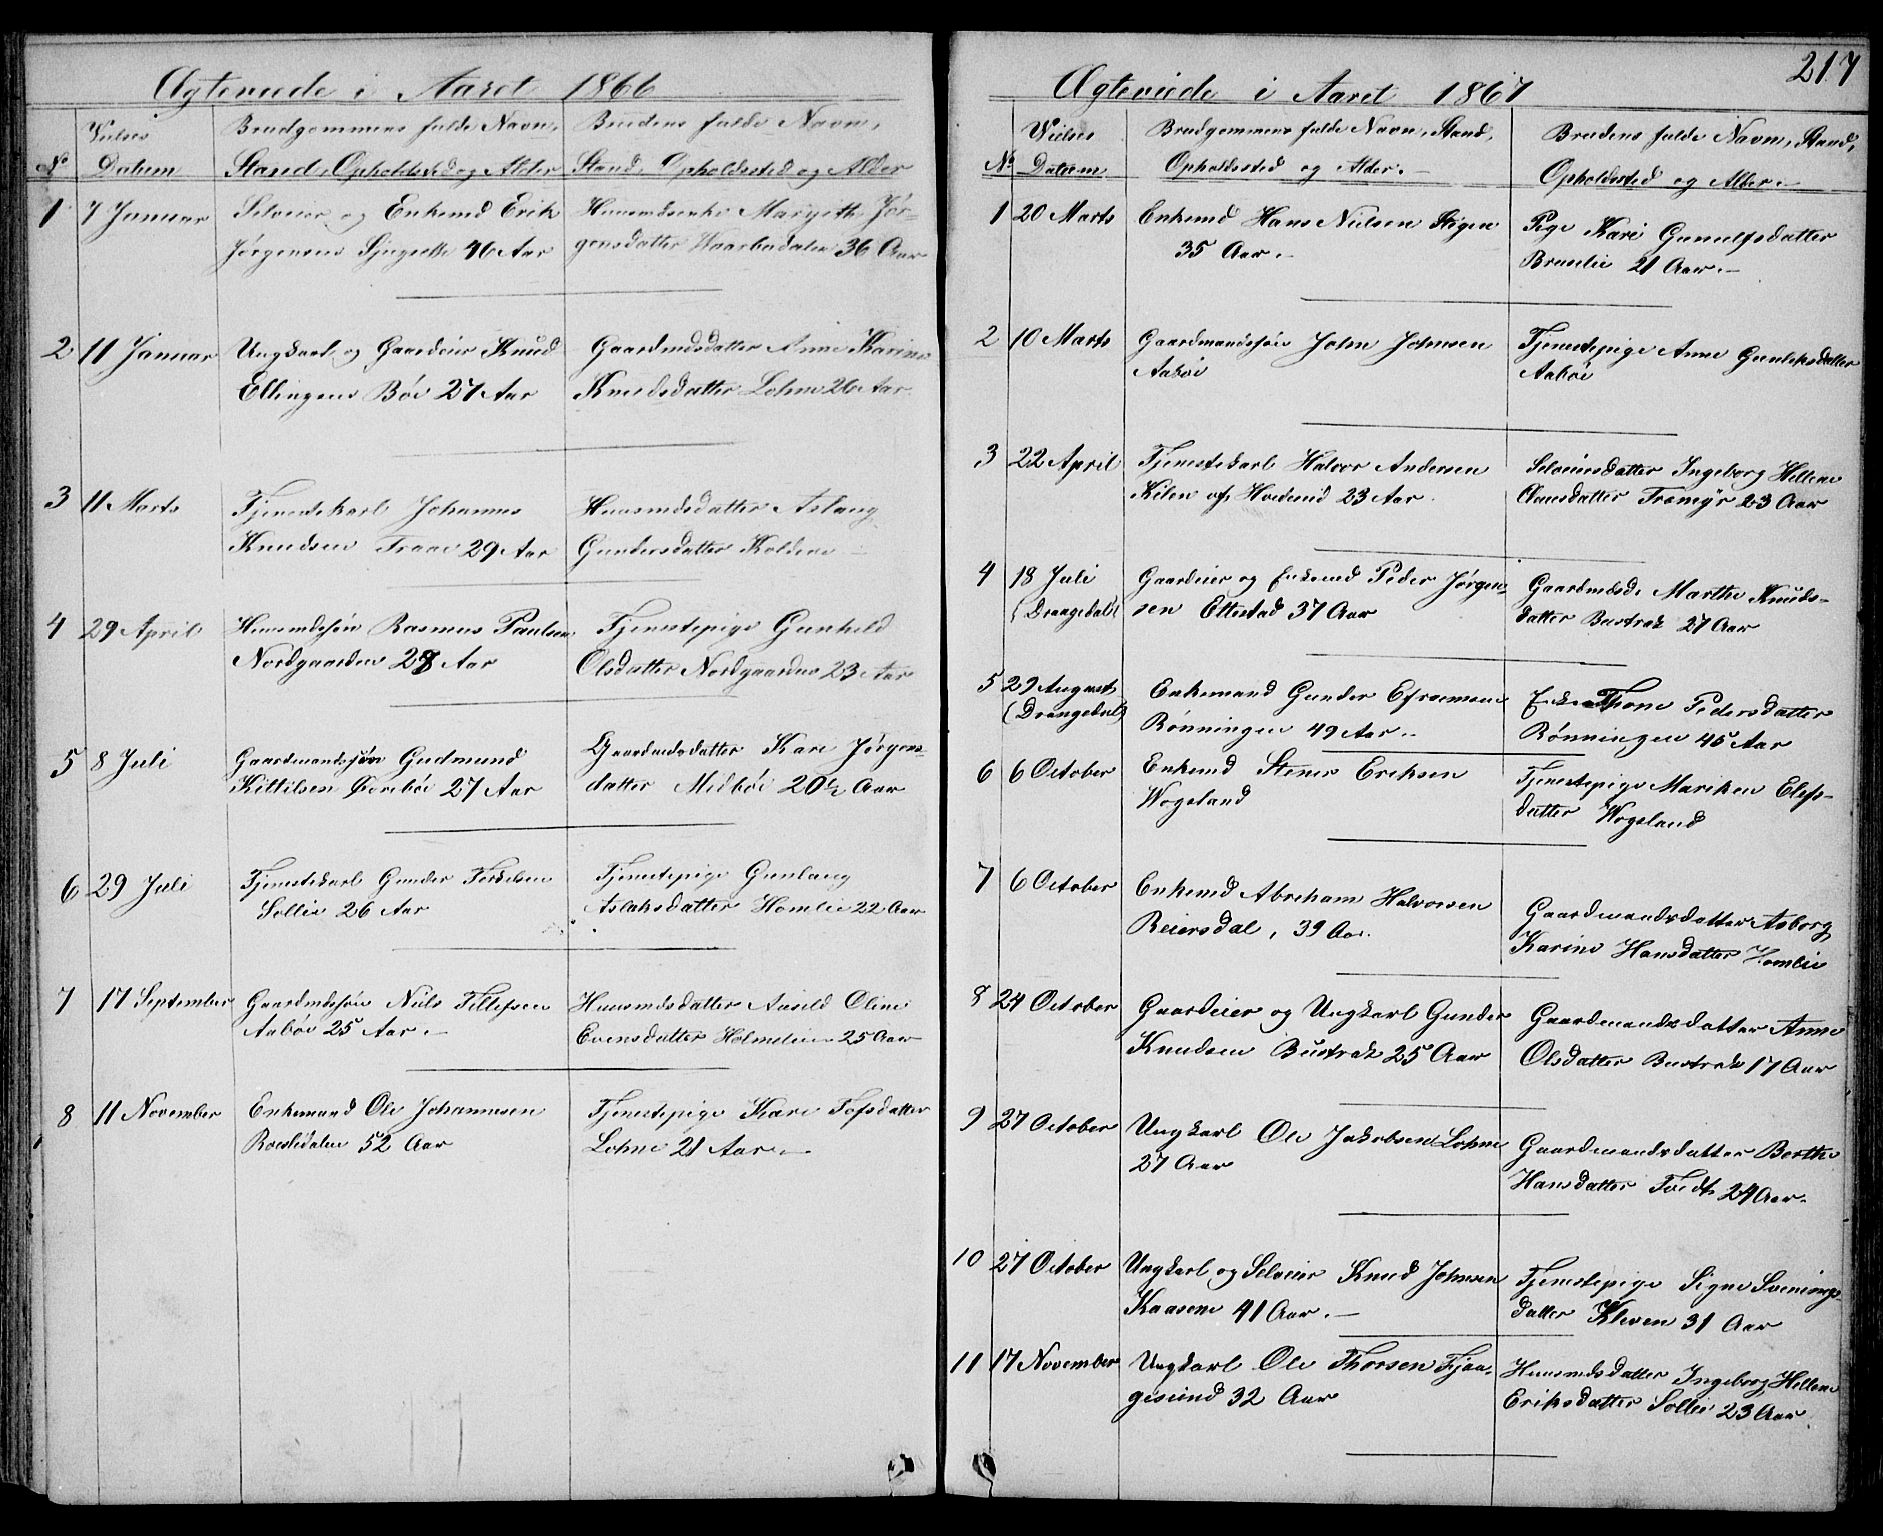 Ægteviede i Aaret 1866
No
Vielses
Datum
Brudgommens fulde Navn,
Stand, Opholdsted og Alder
Brudens fulde Navn,
Stand, Opholdssted og Alder
1 7 Januar Selveier og Enkemd Erik
Jørgensen 46 Aar
Huusmdsenke Margethe Jør-
gensdatter Waarbudalen 36 Aar
2 11 Januar Ungkarl og Gaardeier Knud
Ellingsen Böe 27 Aar
Gaardmdsdatter Anne Karine
Knudsdatter Lohne 26 Aar
3 11 Marts Tjenestekarl Johannes
Knudsen Traae 29 Aar
Huusmdsdatter Aslaug
Gundersdatter Koldene
4 29 April Huusmdssön Rasmus Paulsen
Nordgaarden 28 Aar
Tjenestepige Gunhild
Olsdatter Nordgaarden 23 Aar
5 8 Juli Gaardmandssøn Gudmund
Kittilsen Örebøe 27 Aar
Gaardmdsdatter Kari Jørgens-
datter Midböe 20½ Aar
6 29 Juli Tjenestekarl Gunder Terkelsen
Sollie 26 Aar
Tjenestepige Gunlaug
Aslaksdatter Homlie 22 Aar
7 17 September Gaardmdssön Niels Tellefsen
Aaböe 25 Aar.-
Huusmdsdatter Aasild Oline
Evensdatter Holmelien 25 Aar
8 11 November Enkemand Ole Johannesen
Roelidalen 52 Aar
Tjenestepige Kari Tofsdatter
Lohne 21 Aar.-
217
Ægteviede i Aaret 1867
No
Vielses
Datum
Brudgommens fulde Navn, Stand,
Opholdssted og Alder.-
Brudens fulde Navn, Stand,
Opholdssted og Alder.-
1 20 Marts Enkemd Hans Nielsen
35 Aar.-
Pige Kari Gunulfsdatter
Brunlie 21 Aar.-
2 10 Marts Gaardmandssøn John Johnsen
Aaböe
Tjenestepige Anne Gunleksdatter
Aaböe
3 22 April Tjenestekarl Halvor Andersen
Kilen af Hvidesid 23 Aar.
Selveiersdatter Ingeborg Hellene
Clausdatter Tromyr 23 Aar
4 18 Juli
(Drangedal)
Gaardeier og Enkemd Peder Jørgen-
sen Ettestad 37 Aar
Gaardmdsd. Marthe Knuds-
datter Bustrak 27 Aar
5 29 August
(Drangedal)
Enkemand Gunder Efraemsen
Rönningen 49 Aar.-
Enke Thone Pedersdatter
Rönningen 45 Aar
6 6 October Enkemd Stener Eriksen
Wogsland
Tjenestepige Mariken Elefs-
datter Wogsland
7 6 October Enkemd Abreham Halvorsen
Reiersdal, 39 Aar.
Gaardmandsdatter Asborg
Karine Hansdatter Homlie
8 24 October Gaardeier og Ungkarl Gunder
Knudsen Bustrak 25 Aar
Gaardmandsdatter Anne
Olsdatter Bustrak 17 Aar
9 27 October Ungkarl Ole Jakobsen Lohne
27 Aar
Gaardmandsdatter Berthe
Hansdatter Tvedt 24 Aar.
10 27 October Ungkarl og Selveier Knud Johnsen
Kaasene 41 Aar.-
Tjenestepige Signe Svenings-
datter Kleven 31 Aar
11 17 November Ungkarl Ole Thorsen Fjaa-
gesund 32 Aar
Huusmdsdatter Ingeborg Hellene
Eriksdatter Sollie 23 Aar.